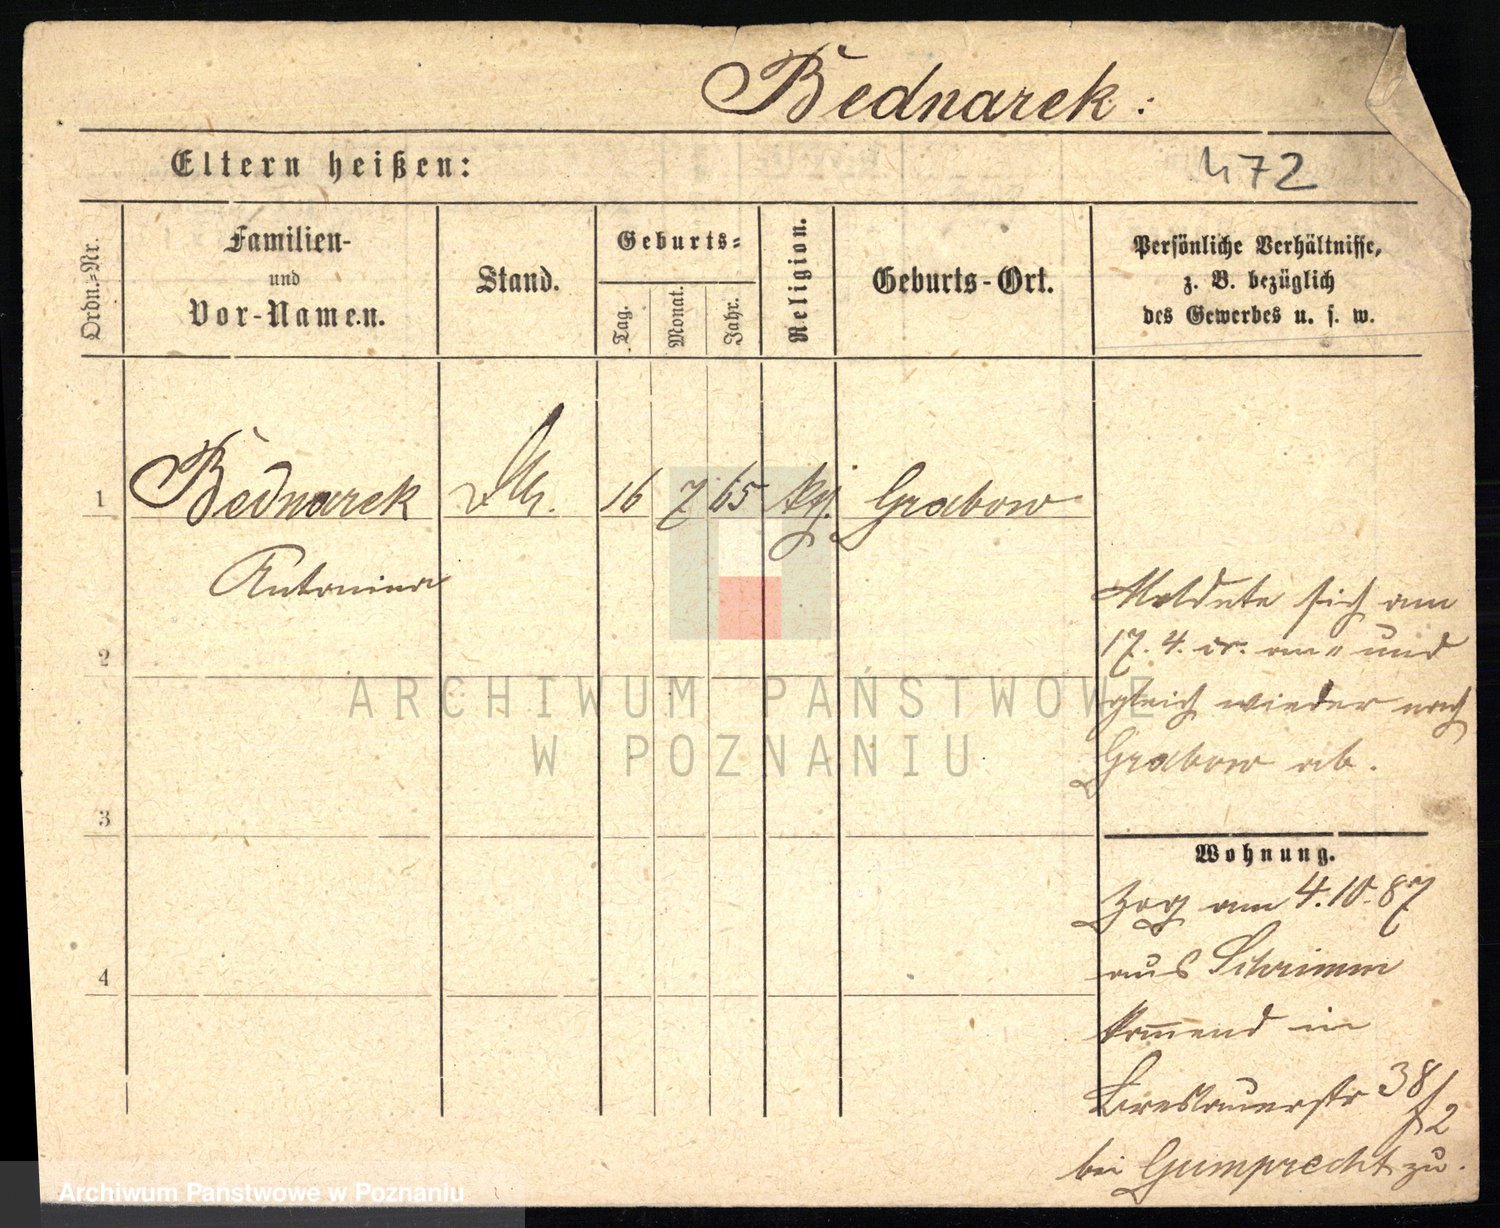 Bednarek:
Eltern heißen:
472
Ordn.-Nr.
Familien-
und
Vor-Namen.
Stand.
Geburts-
Tag.
Monat.
Jahr.
Religion.
Geburts-Ort.
Persönliche Verhältnisse,
z. B. bezüglich
des Gewerbes u. s. w.
1 Bednarek 16 7 65 Grabow
Antonina
Meldete sich am
17. 4. cr. an u und
gleich wieder nach
Grabow ab.
2
3
4
Wohnung.
Zog am 4.10.87
aus Schrimm
kommend in
Breslauerstr 38/2
bei Gumprecht zu.
ARCHIWUM PAŃSTWOWE
W POZNANIU
Archiwum Państwowe w Poznaniu